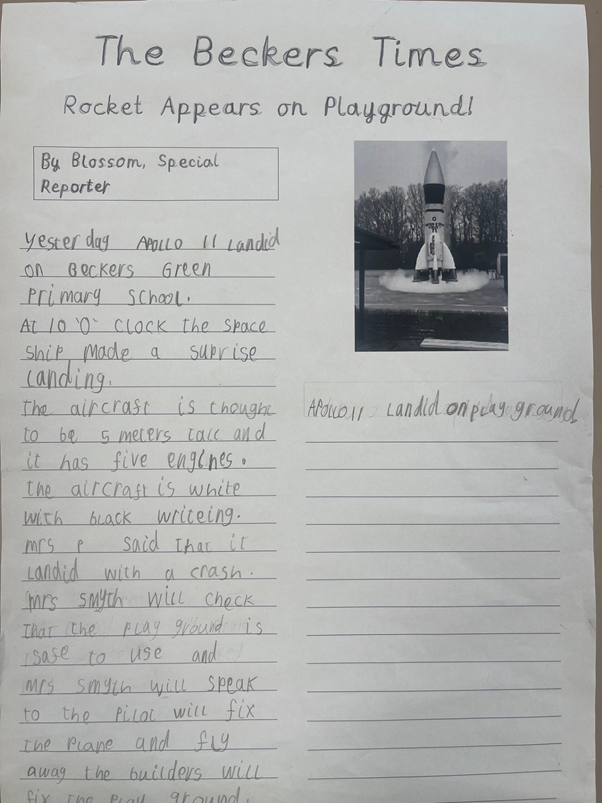 The Beckers Times
Rocket Appears on Playground!
By Blossom, Special
Reporter
yesterday Apollo 11 Landid
on Beckers Green
Primary School.
At 10 'O' Clock the space
ship made a suprise
landing.
the aircraft is thought
to be 5 meters tall and
it has five engines.
the aircraft is white
with black writeing.
mrs P said that it
Landid with a crash.
Mrs smyth will check
that the play ground is
safe to use and
mrs smyth will speak
to the pilot will fix
the plane and fly
away the builders will
fix the play ground.
Apollo 11 Landid on play ground